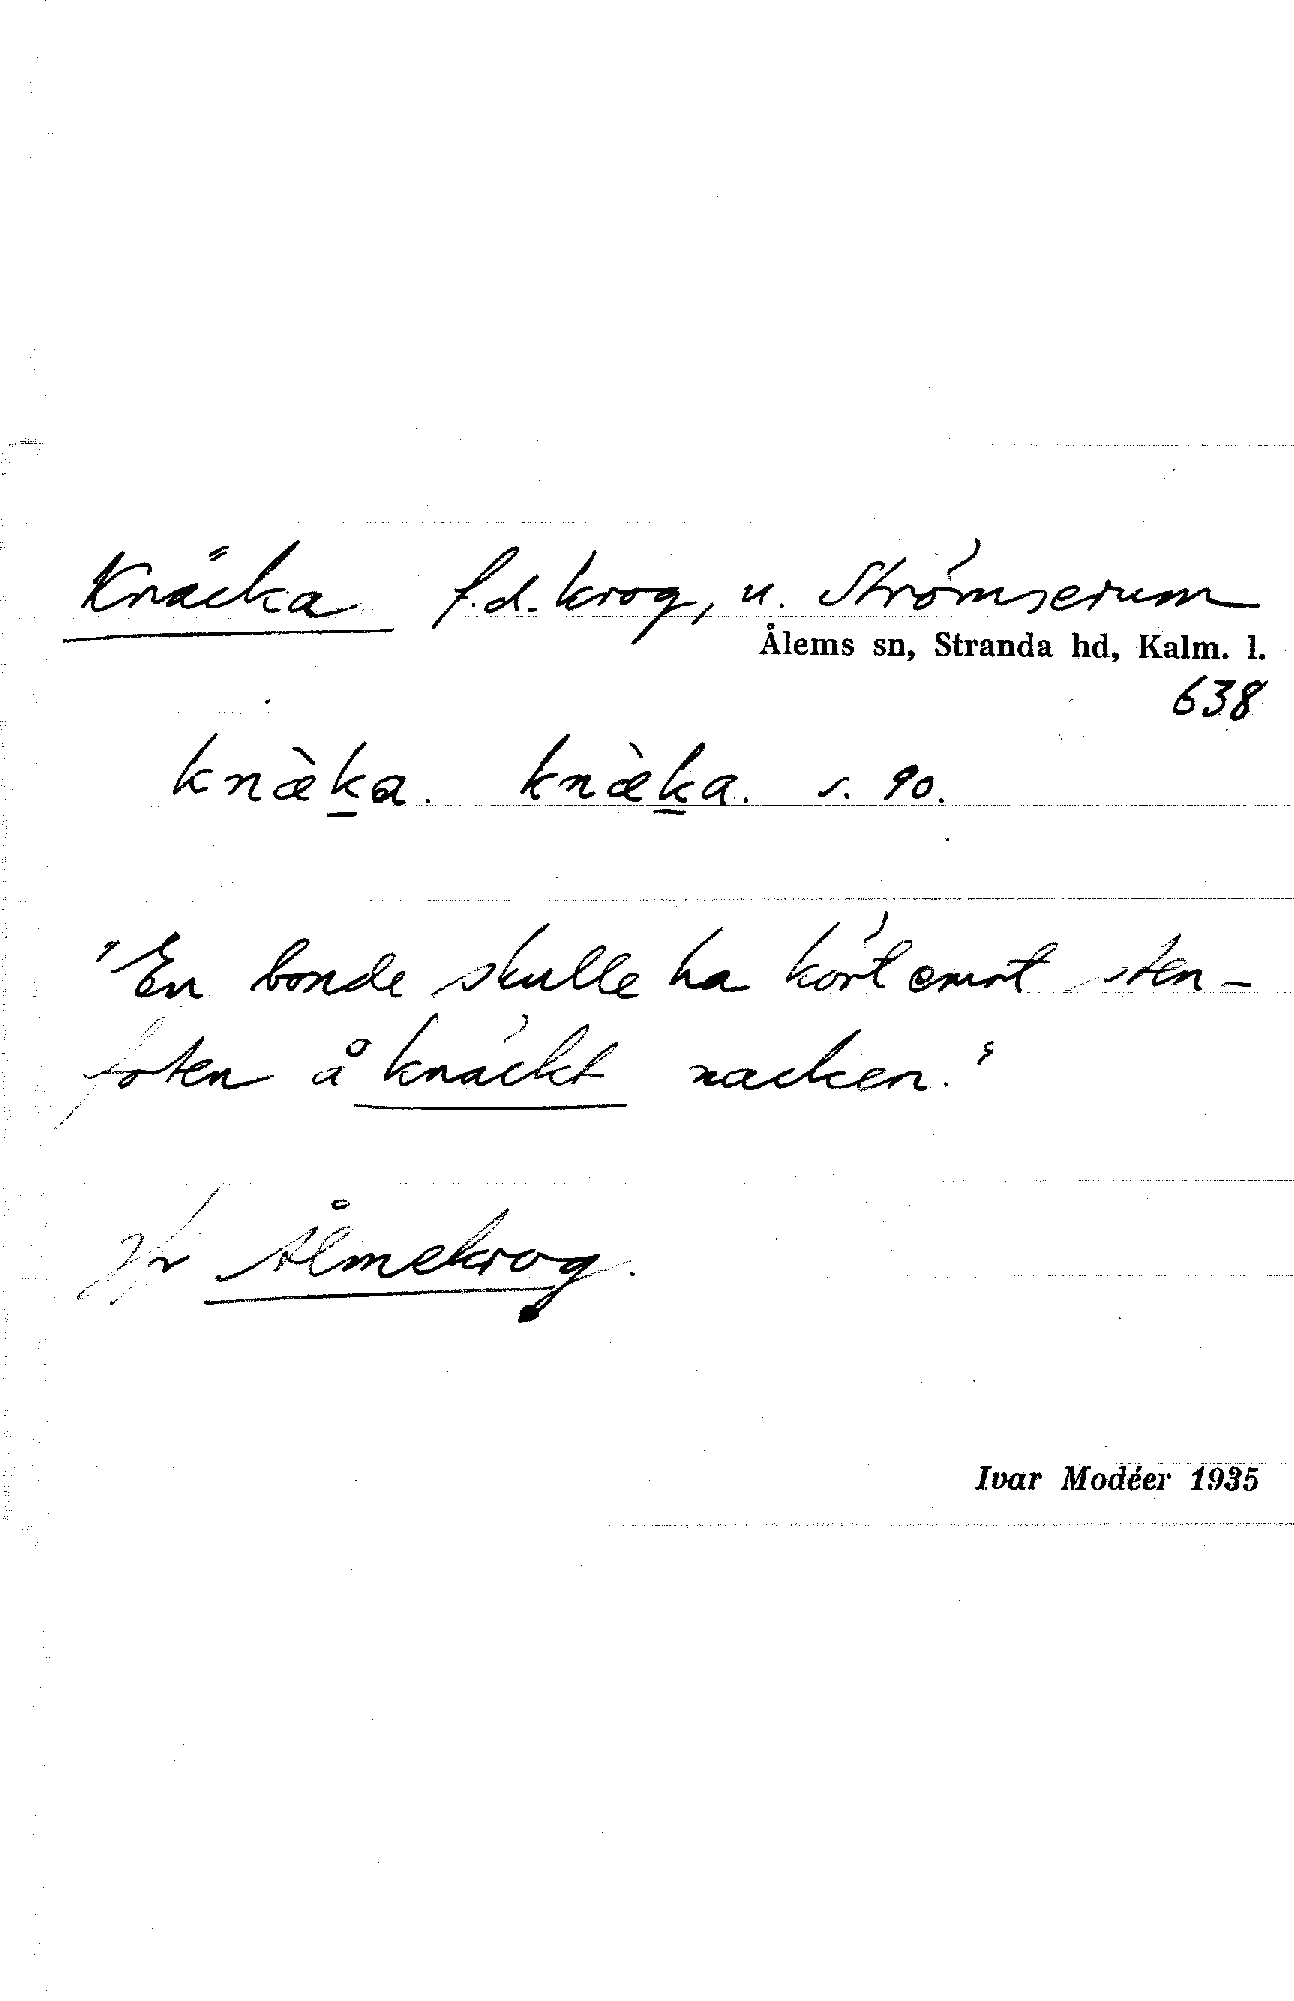 Knäcka f.d. krog, u. Strömserum
Ålems sn, Stranda hd, Kalm. l.
638
knæ̀k̲a. knæ̀k̲a. s. 90.
"En bonde skulle ha kört emot sten-
foten å knäckt nacken."
Jfr Ålmekrog.
Ivar Modéer 1935